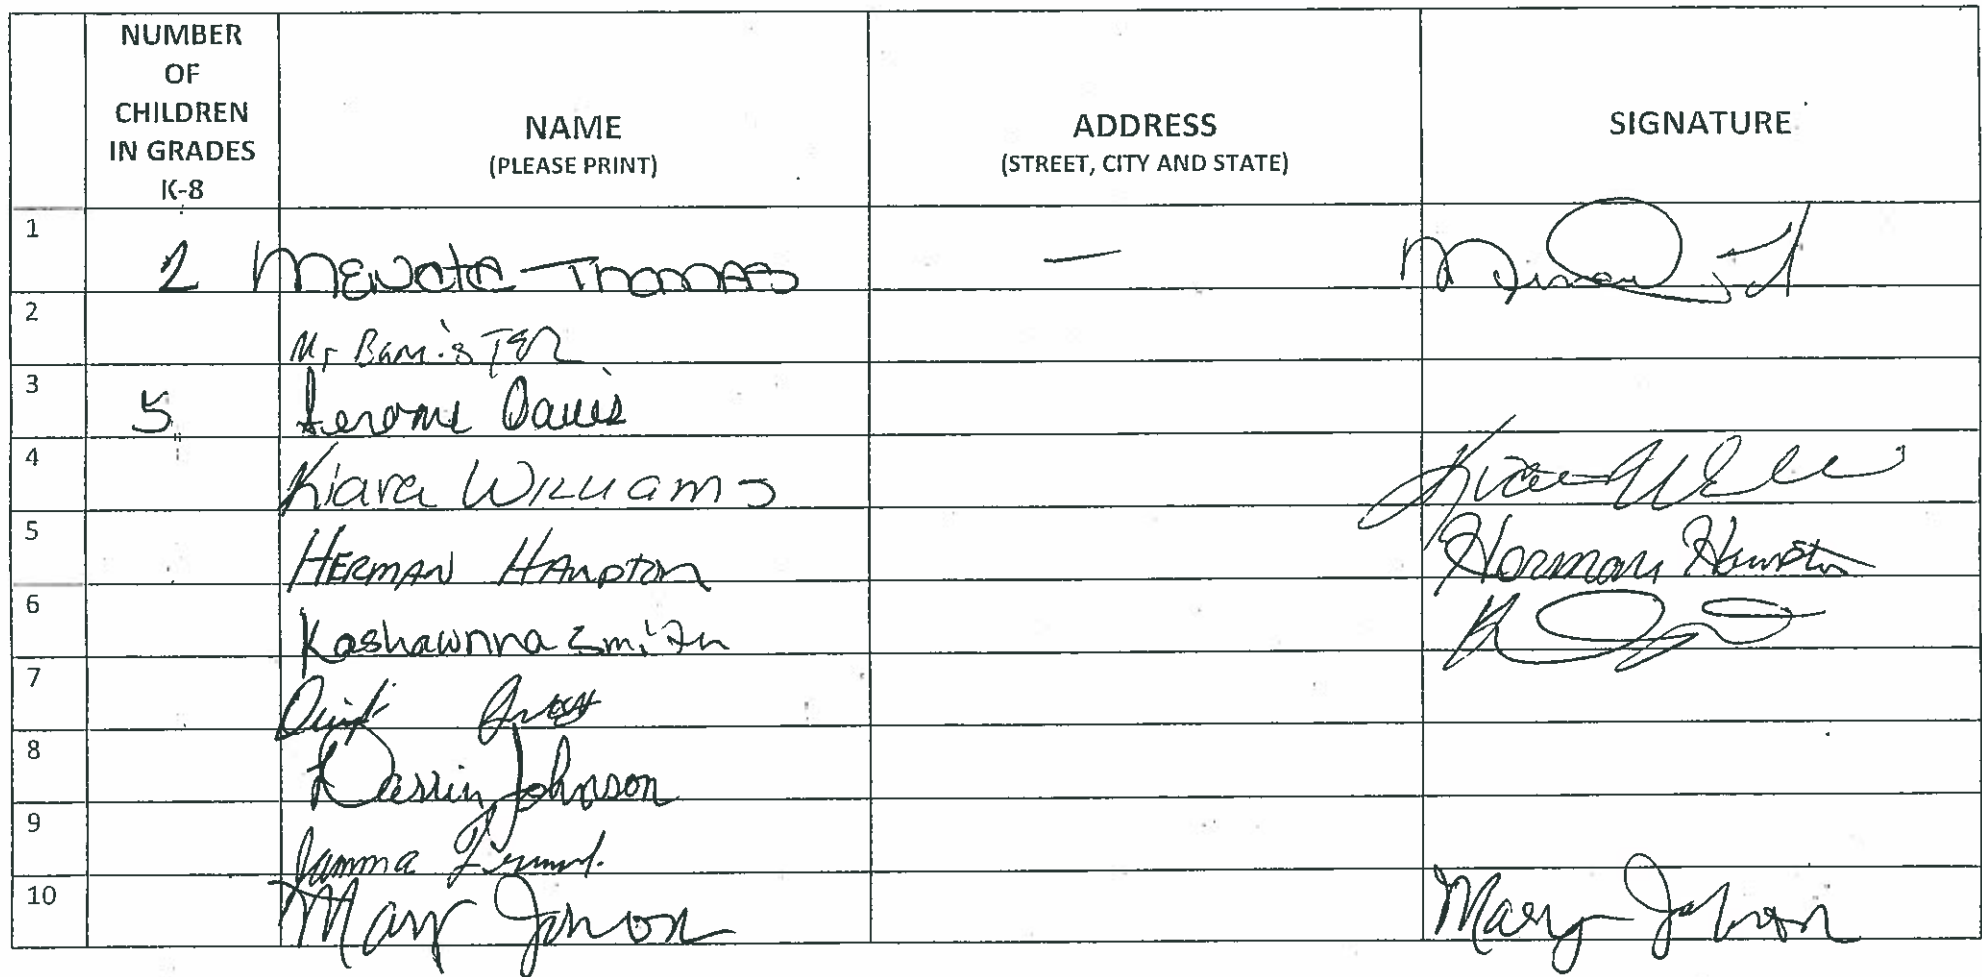 NUMBER
OF
CHILDREN
IN GRADES
K-8
NAME
(PLEASE PRINT)
ADDRESS
(STREET, CITY AND STATE)
SIGNATURE
1 2 Thomas —
2 Mr Banister
3 5 Jerome Davis
4 Kiara Williams
5 HERMAN HAmpton Herman Hampton
6 Kashawnna Smith
7
8 Darrin Johnson
9
10 Mary Mary Johnson